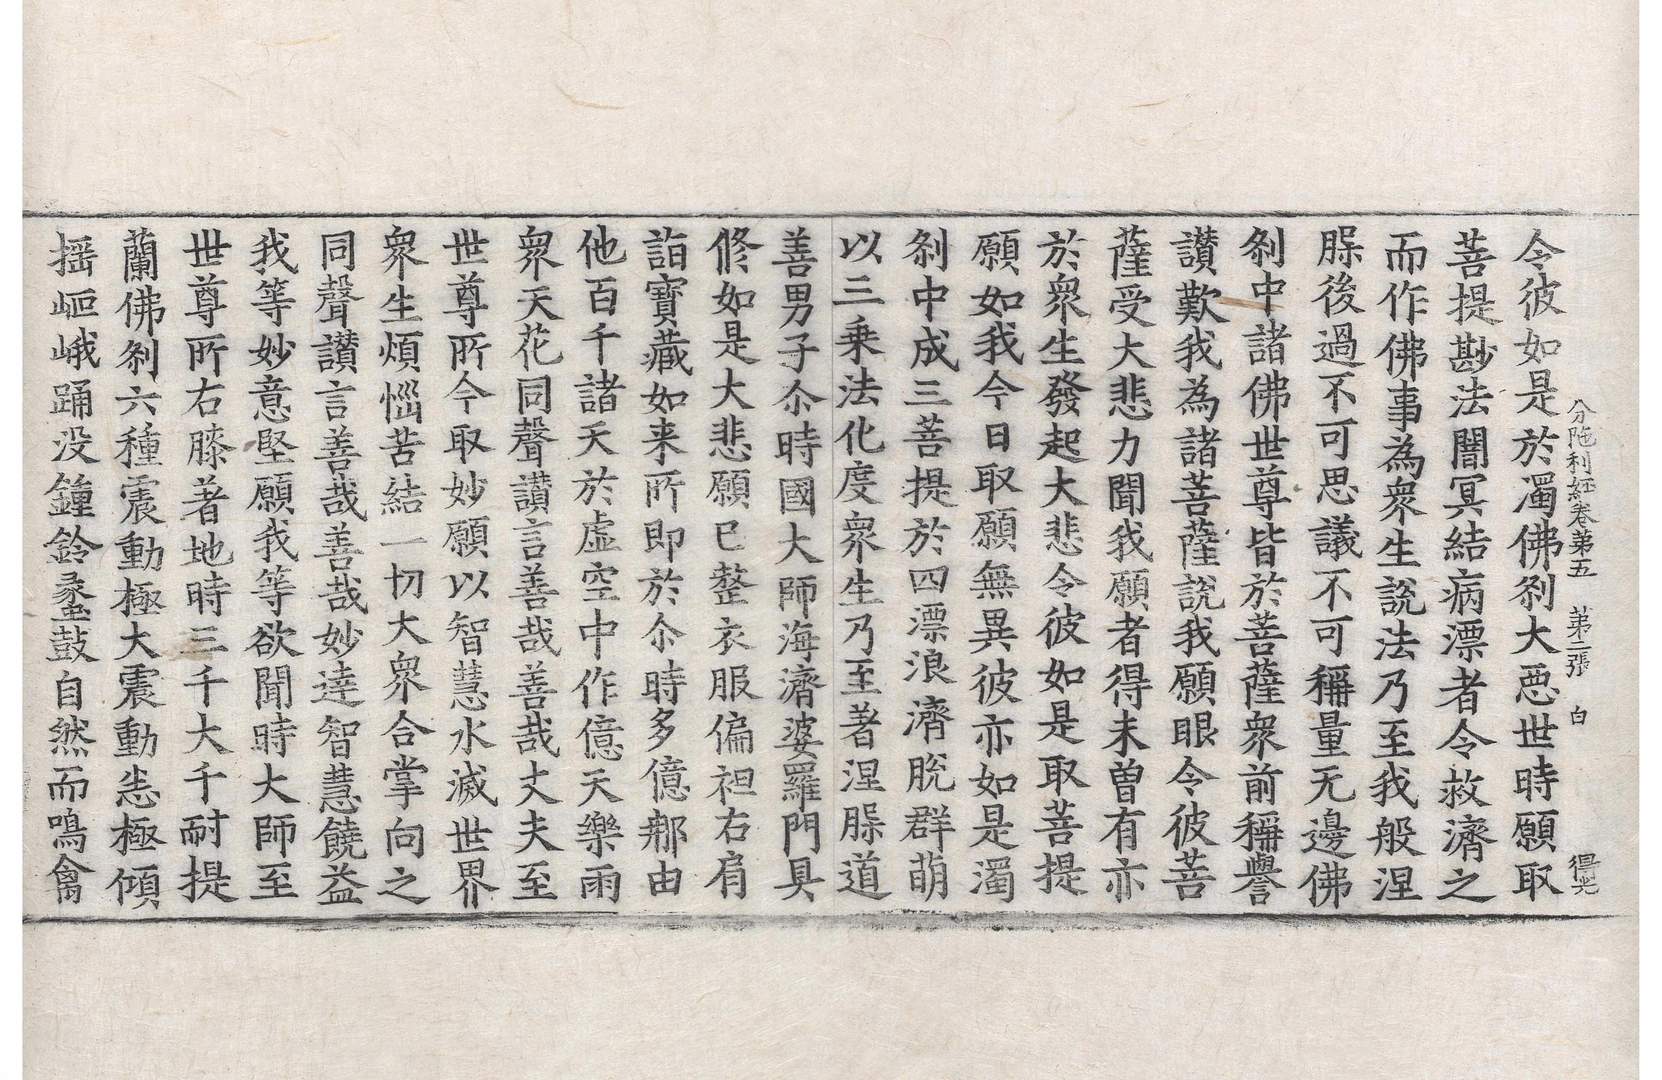 分陁利経卷第五　第二張　白
令彼如是於濁佛刹大惡世時願取
菩提尠法闇冥結病漂者令救濟之
而作佛事為衆生說法乃至我般涅
槃後過不可思議不可稱量无邊佛
刹中諸佛世尊皆於菩薩衆前稱譽
讃歎我為諸菩薩說我願眼令彼菩
薩受大悲力聞我願者得未曽有亦
於衆生發起大悲令彼如是取菩提
願如我今日取願無異彼亦如是濁
刹中成三菩提於四漂浪濟脫群萌
以三乗法化度衆生乃至著涅槃道
善男子尒時國大師海濟婆羅門具
修如是大悲願已整衣服偏袒右肩
詣寶藏如来所即於尒時多億那由
他百千諸天於虛空中作億天樂雨
衆天花同聲讃言善哉善哉丈夫至
世尊所今取妙願以智慧水滅世界
衆生煩惱苦結一切大衆合掌向之
同聲讃言善哉善哉妙達智慧饒益
我等妙意堅願我等欲聞時大師至
世尊所右膝著地時三千大千耐提
蘭佛刹六種震動極大震動恙極傾
揺岖峨踊没鍾鈴鼛鼓自然而鳴禽